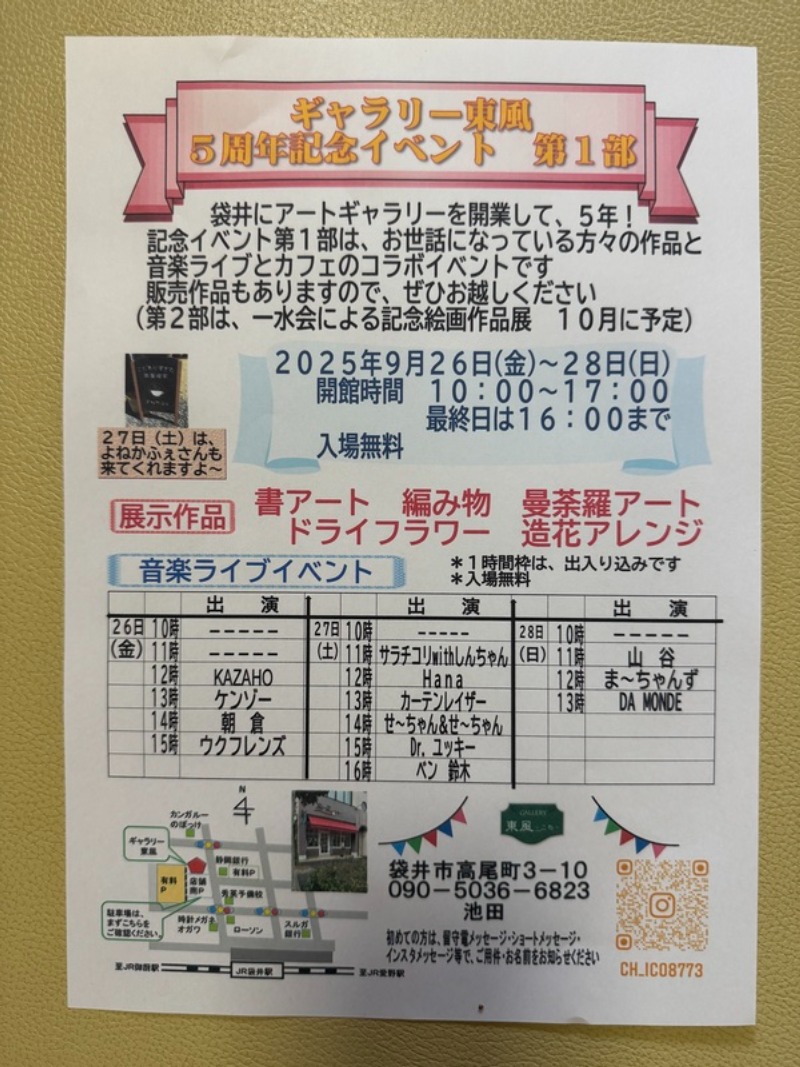 ギャラリー東風
５周年記念イベント　第１部
袋井にアートギャラリーを開業して、５年！
記念イベント第１部は、お世話になっている方々の作品と
音楽ライブとカフェのコラボイベントです
販売作品もありますので、ぜひお越しください
（第２部は、一水会による記念絵画作品展　１０月に予定）
２０２５年９月２６日(金)～２８日(日)
開館時間　１０：００～１７：００
最終日は１６：００まで
入場無料
２７日（土）は、
よねかふぇさんも
来てくれますよ～
展示作品
書アート　編み物　曼荼羅アート
ドライフラワー　造花アレンジ
音楽ライブイベント
＊１時間枠は、出入り込みです
＊入場無料
出　演　出　演　出　演
26日 10時 ----- 27日 10時 ----- 28日 10時 -----
(金) 11時 ----- (土) 11時 サラチコリwithしんちゃん (日) 11時 山　谷
12時 KAZAHO 12時 Hana 12時 ま～ちゃんず
13時 ケンゾー 13時 カーテンレイザー 13時 DA MONDE
14時 朝　倉 14時 せ～ちゃん&せ～ちゃん
15時 ウクフレンズ 15時 Dr. ユッキー
16時 ベン 鈴木
N
カンガルー
のぽっけ
ギャラリー
東風
静岡銀行
有料P
有料
P
店舗
南P
秀英予備校
駐車場は、
まずこちらを
ご確認ください。
時計メガネ
オガワ
ローソン
スルガ
銀行
至JR御厨駅
JR袋井駅
至JR愛野駅
GALLERY
東風
袋井市高尾町３－１０
０９０－５０３６－６８２３
池田
初めての方は、留守電メッセージ・ショートメッセージ・
インスタメッセージ等で、ご用件・お名前をお知らせください
CH_IC08773